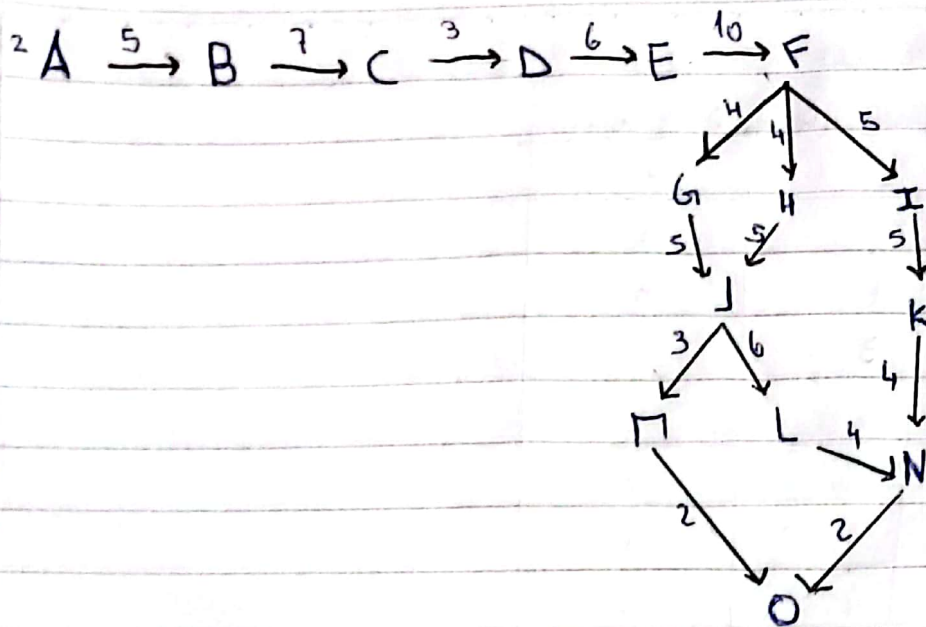 2 A 5 B 7 C 3 D 6 E 10 F
4 4 5
G H I
5 5 5
J K
3 6 4
M L 4 N
2 2
O